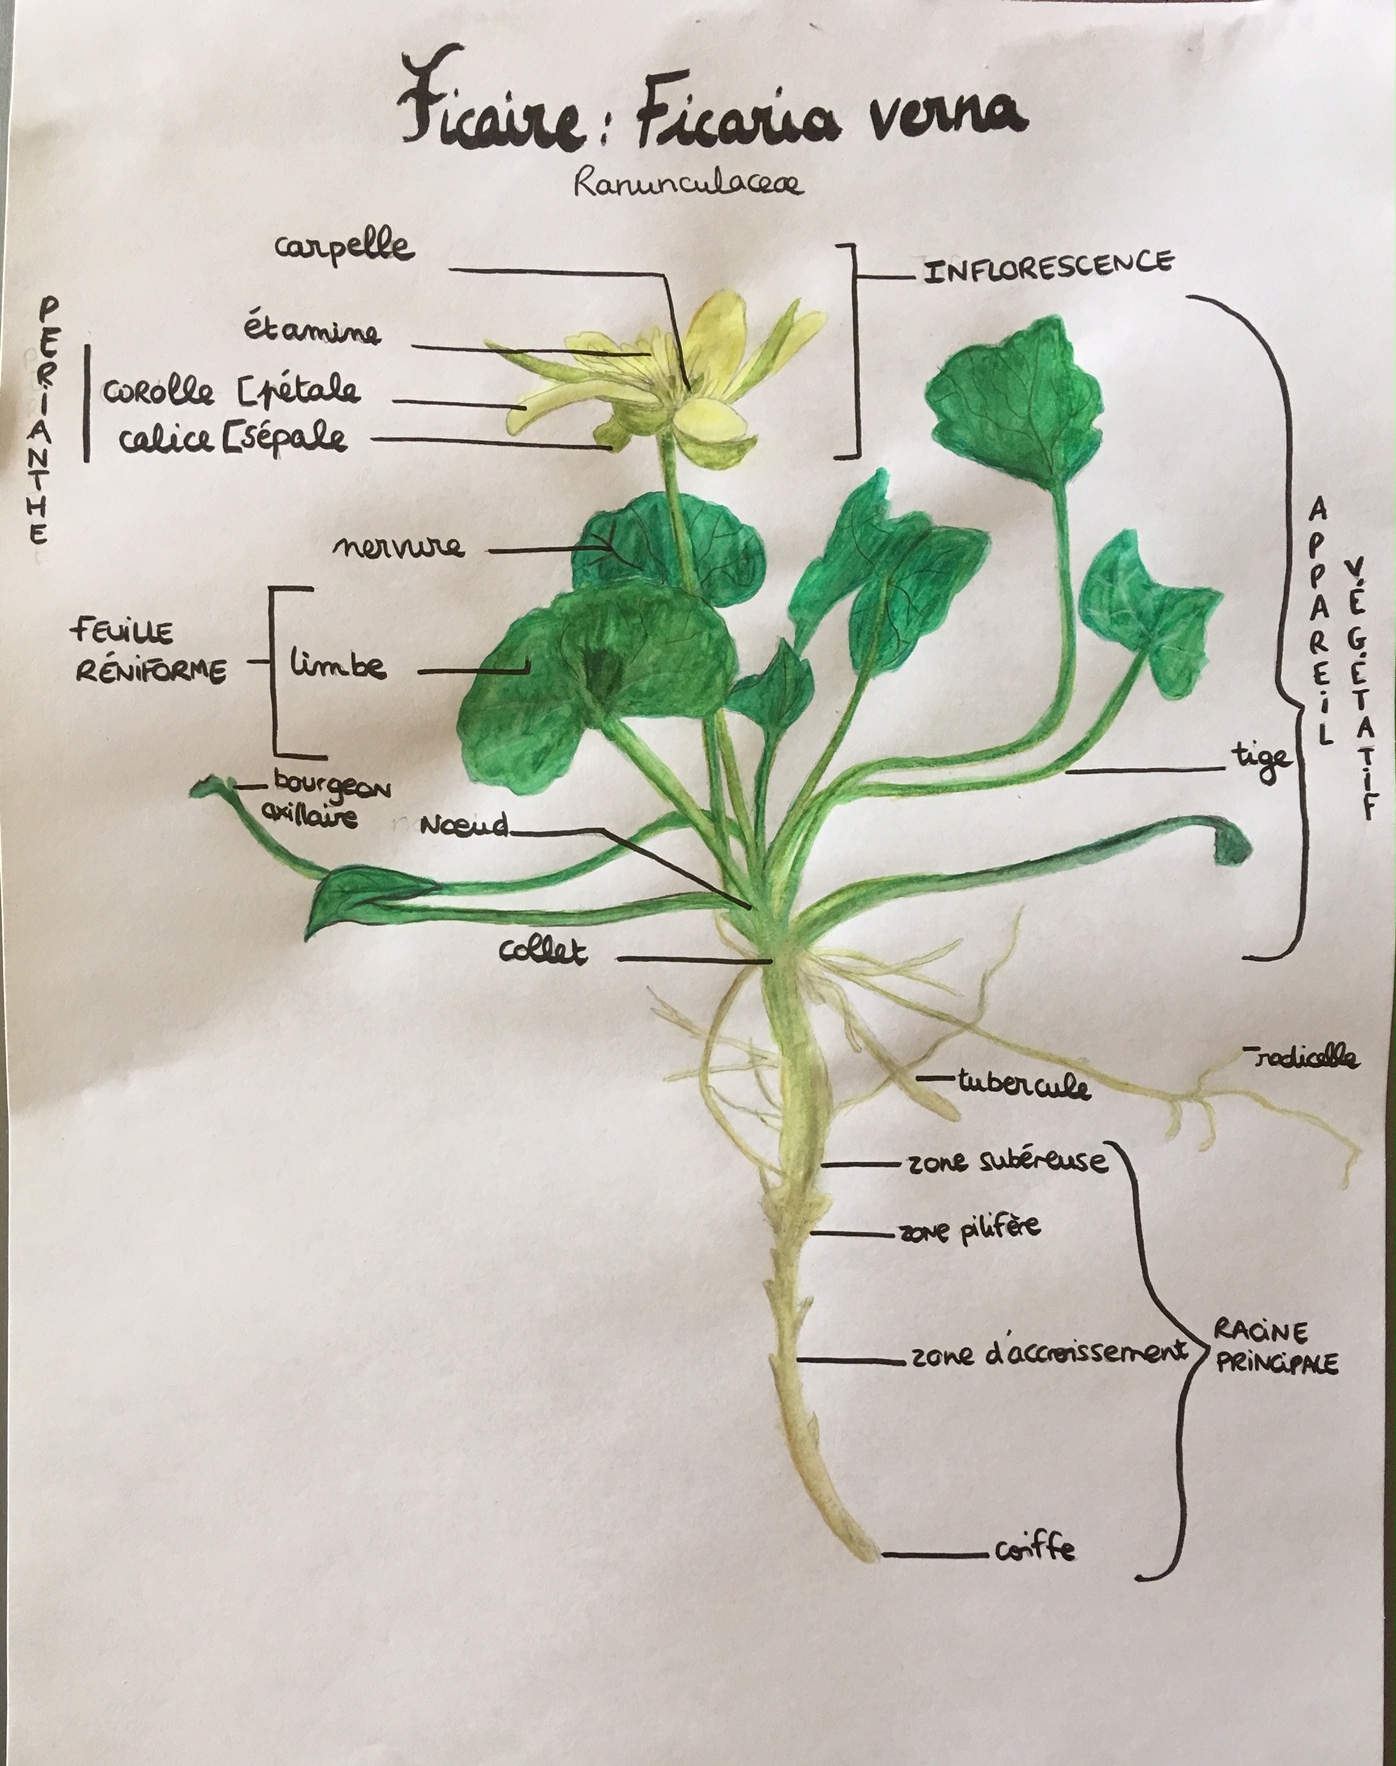 Ficaire : Ficaria verna
Ranunculaceae
carpelle
INFLORESCENCE
PERIANTHE
étamine
corolle [pétale
calice [sépale
nervure
FEUILLE
RÉNIFORME
limbe
APPAREIL
VÉGÉTATIF
tige
bourgeon
axillaire
Nœud
collet
radicelle
tubercule
zone subéreuse
zone pilifère
zone d'accroissement
RACINE
PRINCIPALE
coiffe